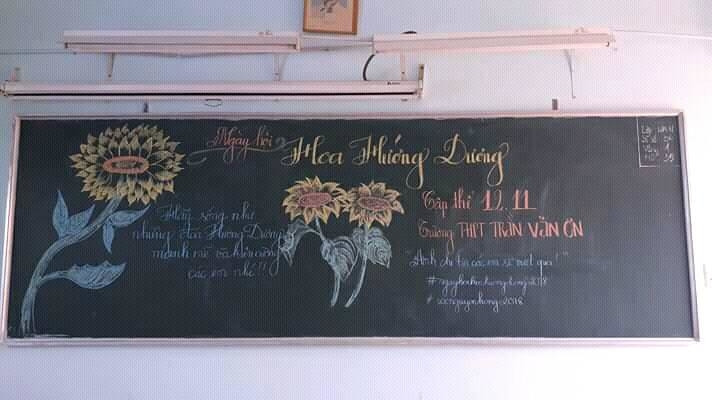 Ngày hội Hoa Hướng Dương
Hãy sống như
những đoá Hướng Dương
mạnh mẽ và kiên cường
các em nhé!!
Tập thể 12.11
Trường THPT TRẦN VĂN ƠN
"Anh chị tin các em sẽ vượt qua!"
#ngayhoihoahuongduong2018
2018
Lớp
Sĩ số
Vắng 1